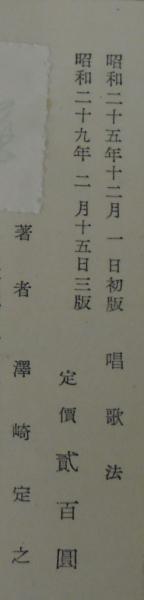 昭和二十五年十二月一日初版
昭和二十九年二月十五日三版
唱歌法
定價貳百圓
著者澤崎定之